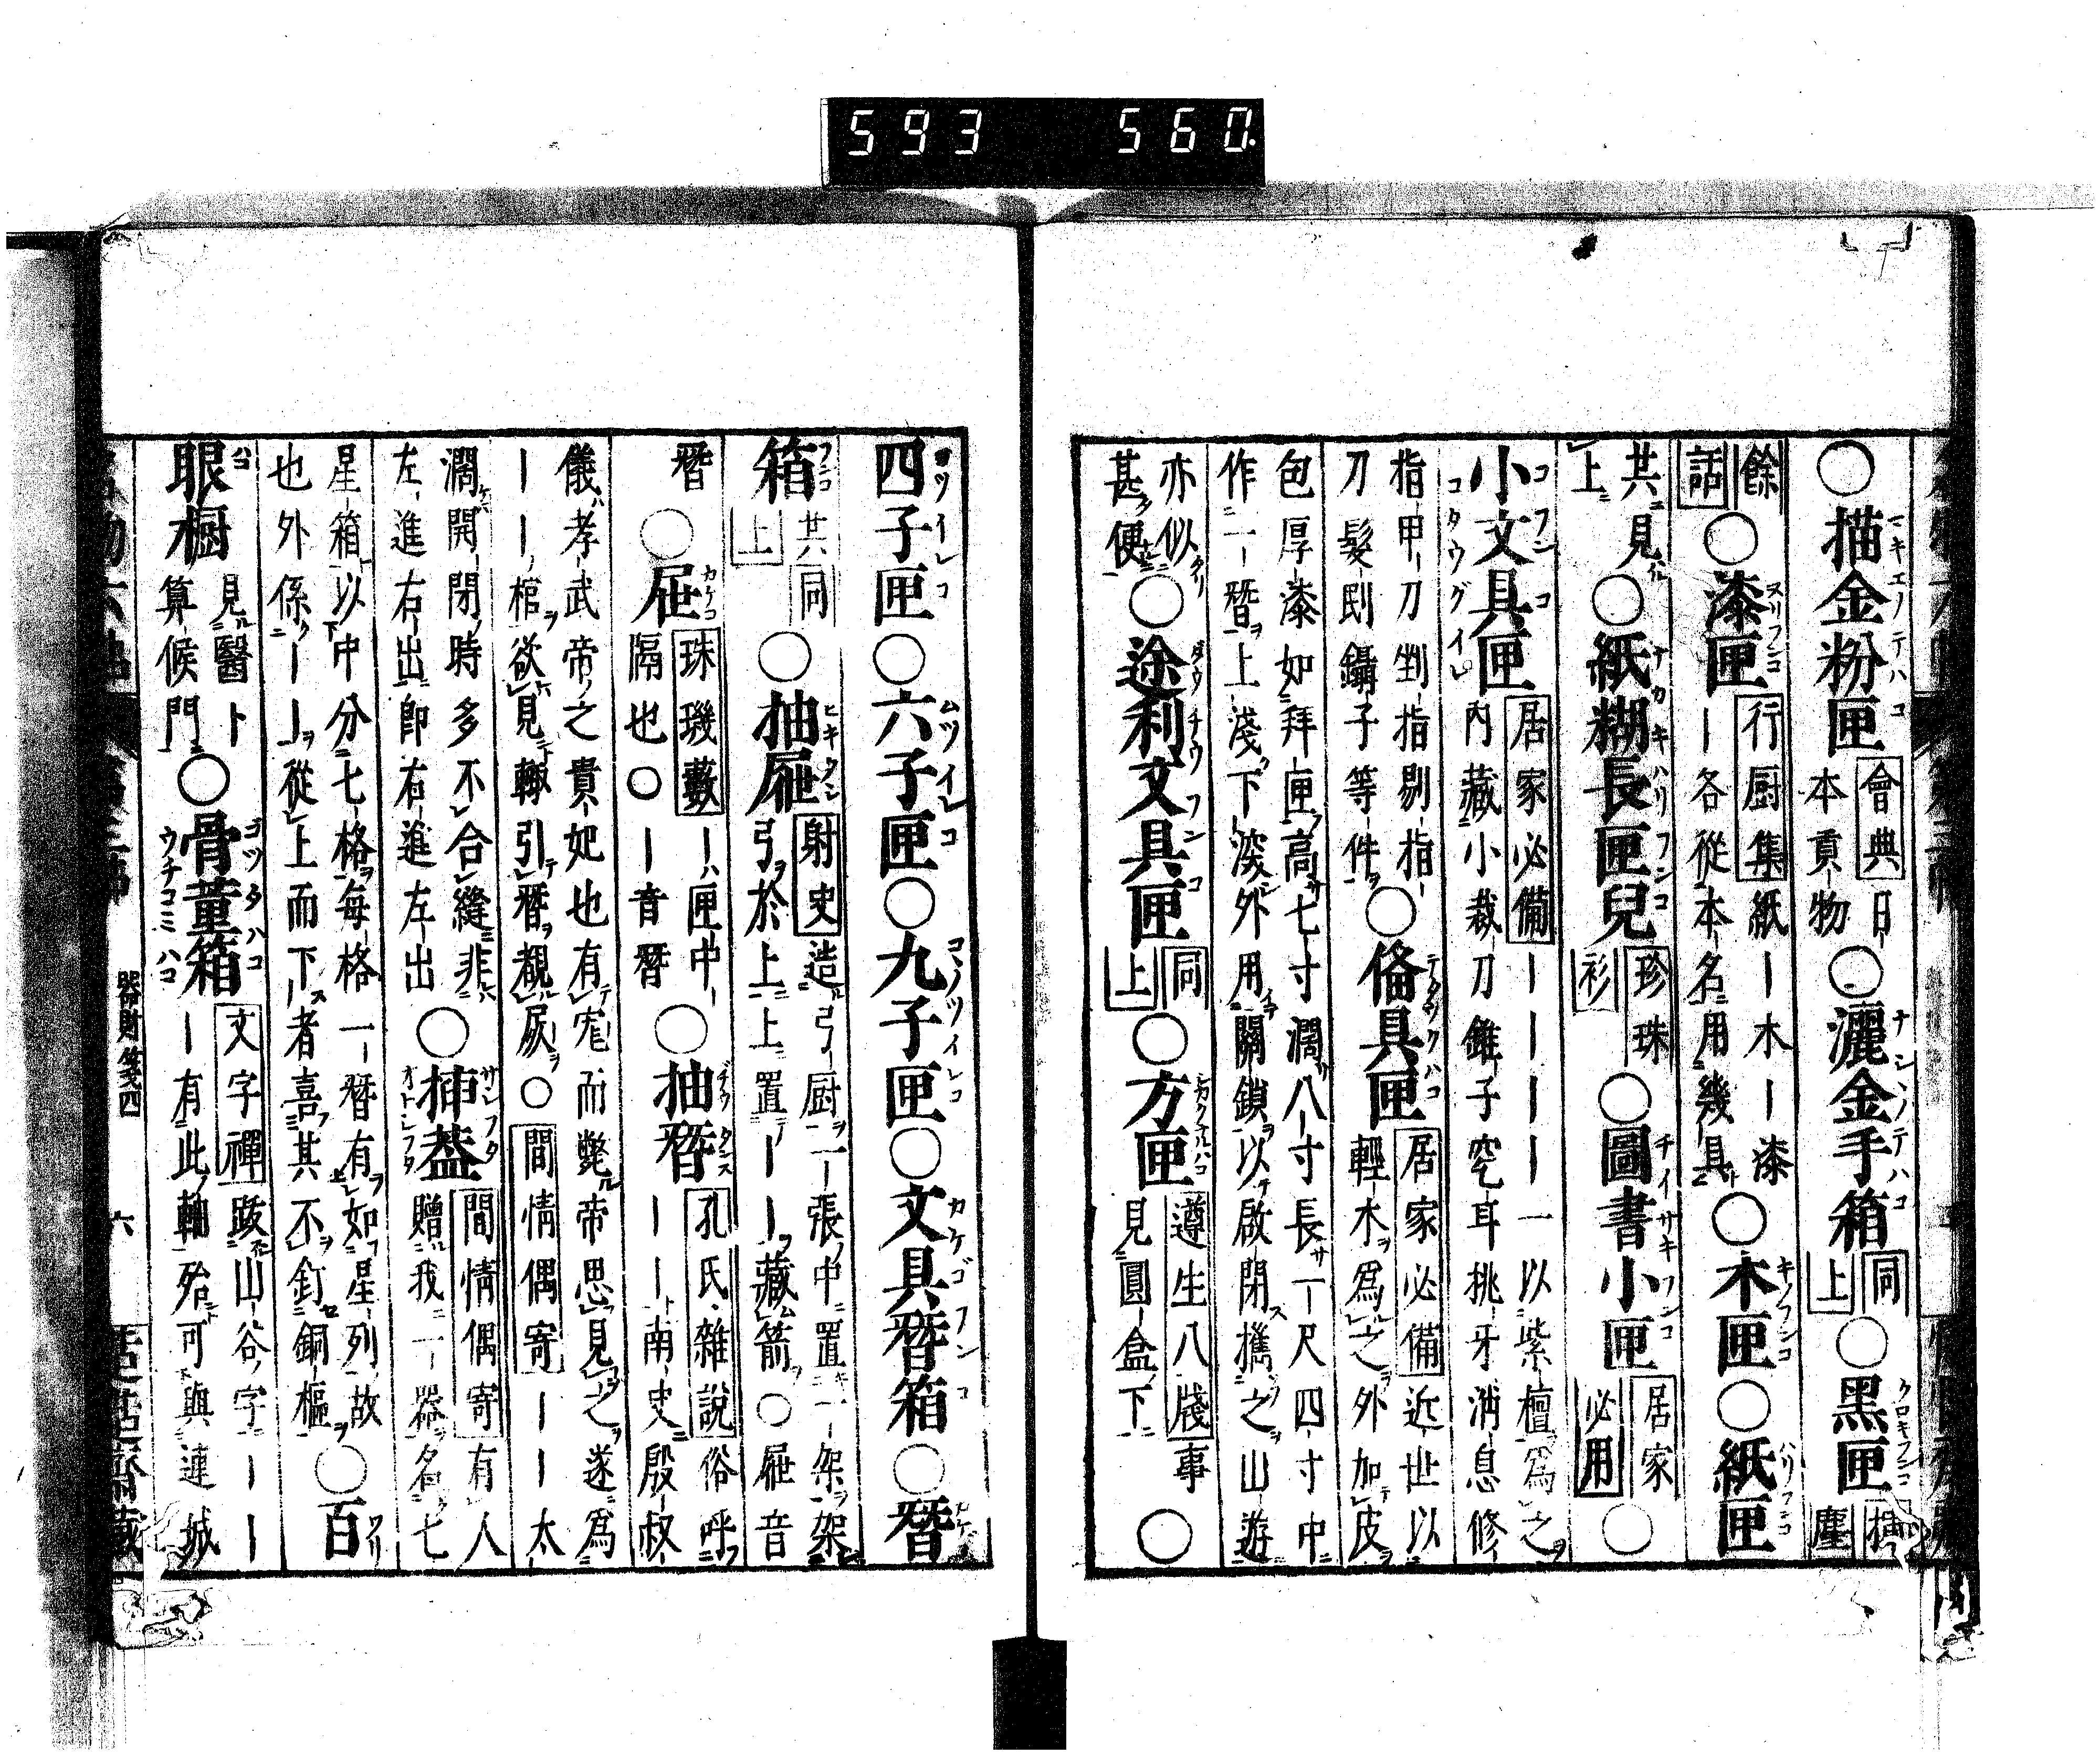 593 560
○描金粉匣 會典 日本貢物 ○灑金手箱 同上 ○黑匣
餘話 ○漆匣 行厨集 紙｜木｜漆｜各從本名用幾具 ○木匣 ○紙匣
共見上 ○紙糊長匣兒 珍珠衫 ○圖書小匣 居家必用 ○
小文具匣 居家必備 ｜｜｜｜一以紫檀為之内藏小裁刀錐子穵耳挑牙消息修
指甲刀剉指剔指刀髮刡鑷子等件 ○俻具匣 居家必備 近世以輕木為之外加皮
包厚漆如拜匣高七寸濶八寸長一尺四寸中作一㬱上淺下深外用關鎖以啟閉攜之山遊
亦似甚便 ○途利文具匣 同上 ○方匣 遵生八牋 事見圓盒下 ○
四子匣 ○六子匣 ○九子匣 ○文具㬱箱 ○㬱
箱 共同上 ○抽屜 射史 造弓厨一張中置一架架弓於上上置｜｜藏箭 ○屜音
㬱 ○屉 珠璣藪 ｜匣中隔也 ○｜音㬱 ○抽㬱 孔氏雜說 俗呼｜｜｜南史殷叔
儀孝武帝之貴妃也有寵而斃帝思見之遂為｜｜棺欲見輙引㬱覩屍 ○ 間情偶寄 ｜｜太
濶開閉時多不合縫非左進右出即右進左出 ○揷蓋 間情偶寄 有人贈我一器名七
星箱以中分七格每格一㬱有如星列故也外係｜｜從上而下者喜其不釘銅樞 ○百
眼橱 見醫卜算候門 ○骨董箱 文字禪 跋山谷字｜｜｜有此軸殆可與連城
器財箋四
六